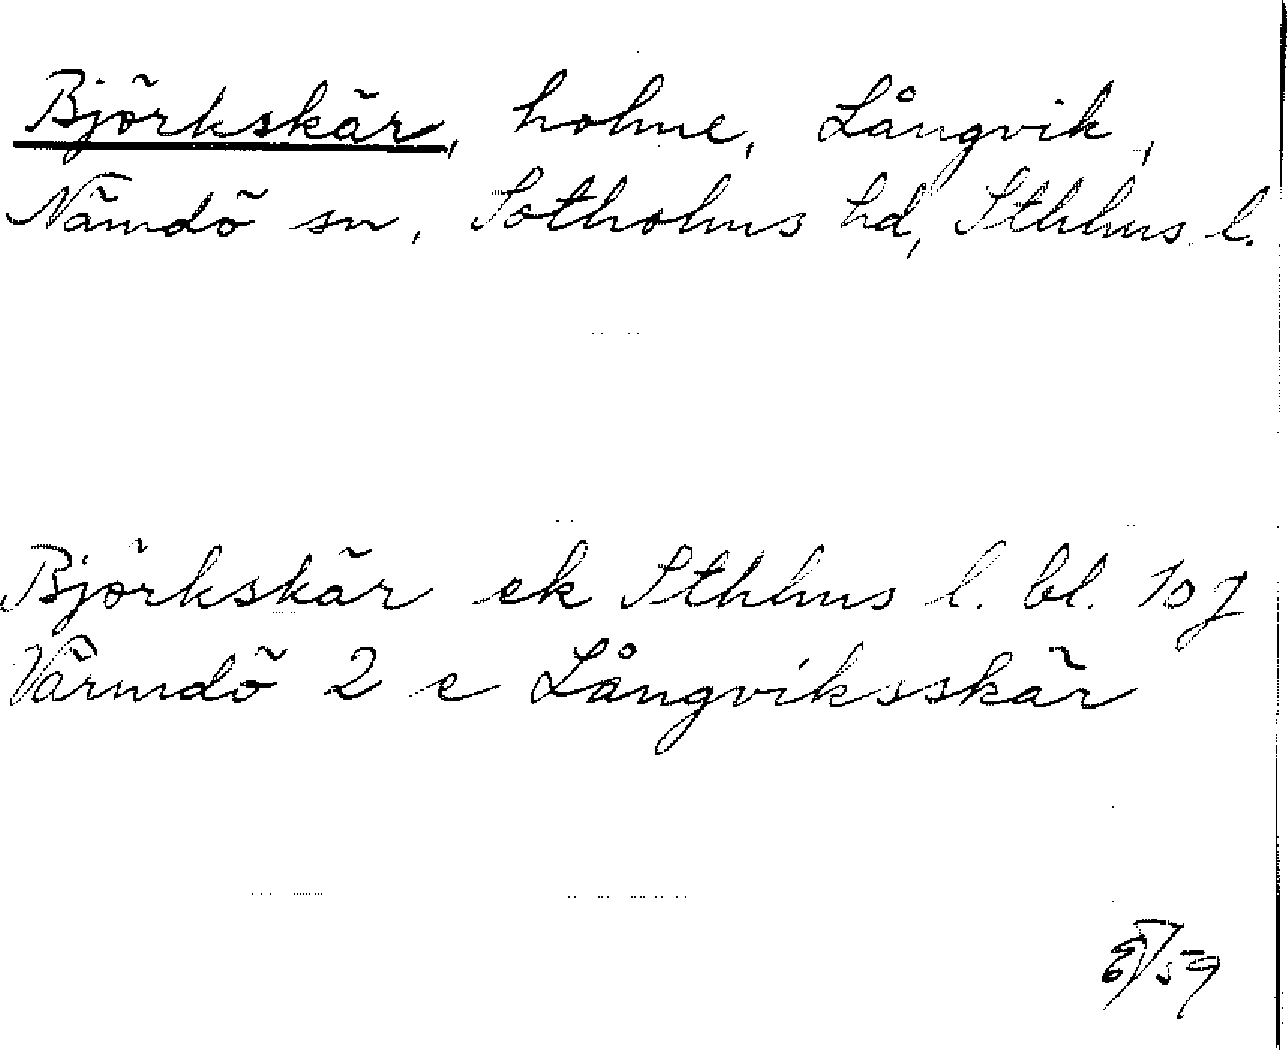 Björkskär, holme, Långvik,
Nämdö sn, Sotholms hd, Sthlms l.
Björkskär ek Sthlms l. bl. 10 J
Värmdö 2 c Långviksskär